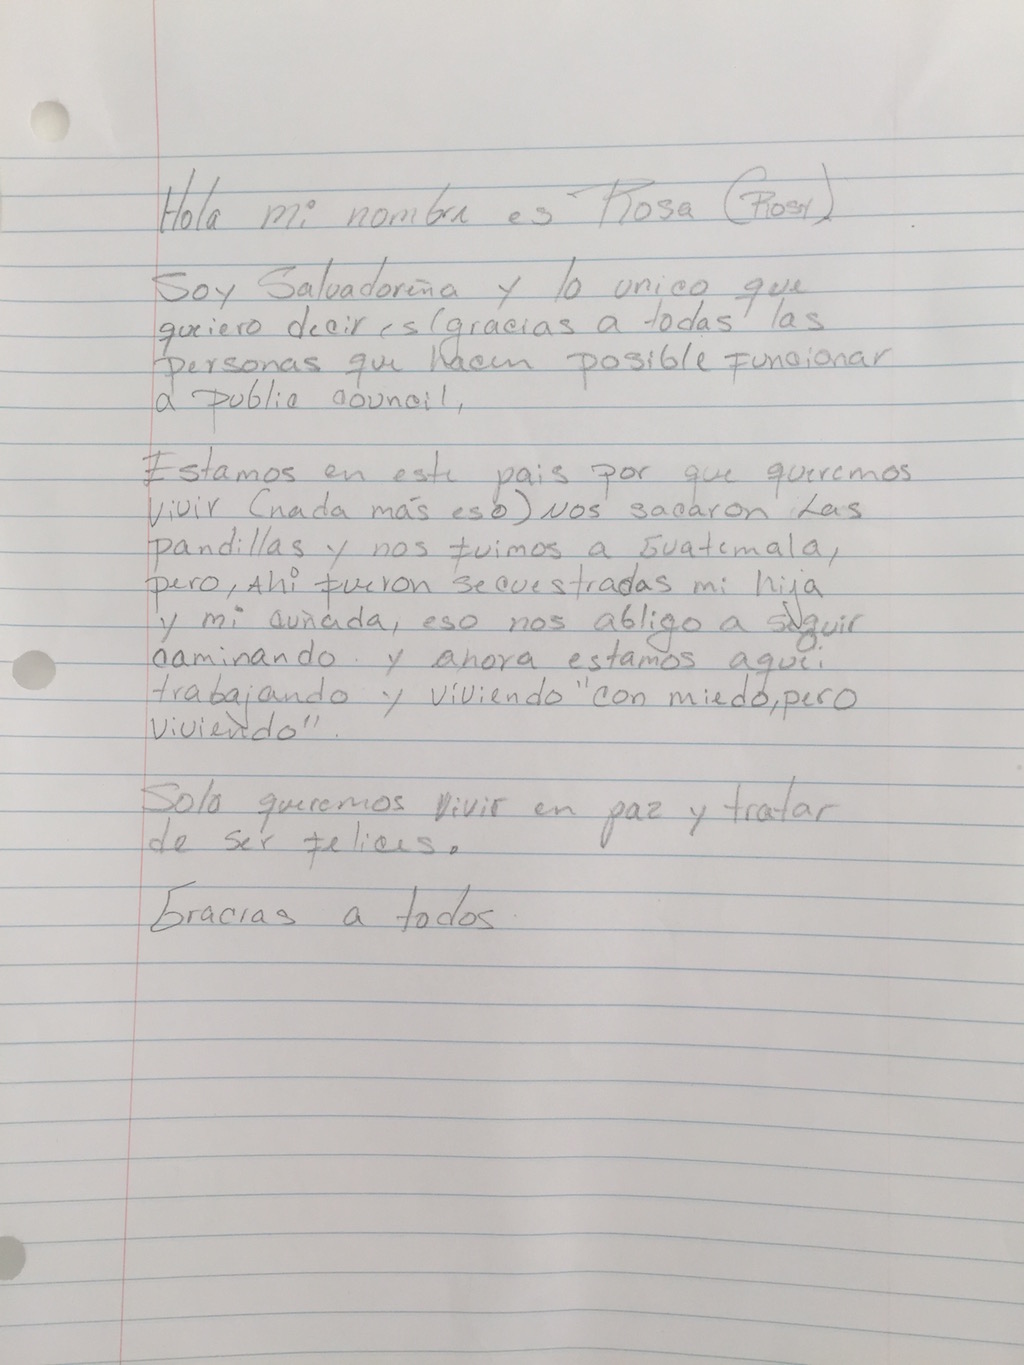 Hola mi nombre es Rosa (Rosy)
Soy Salvadoreña y lo unico que
quiero decir es (gracias a todas las
personas que hacen posible funcionar
a public council,
Estamos en este pais por que queremos
vivir (nada más eso) Nos sacaron Las
pandillas y nos fuimos a Guatemala,
pero, Ahi fueron secuestradas mi hija
y mi cuñada, eso nos abligo a seguir
caminando y ahora estamos aqui.
trabajando y viviendo "con miedo, pero
viviendo".
Solo queremos vivir en paz y tratar
de ser felices.
Gracias a todos.